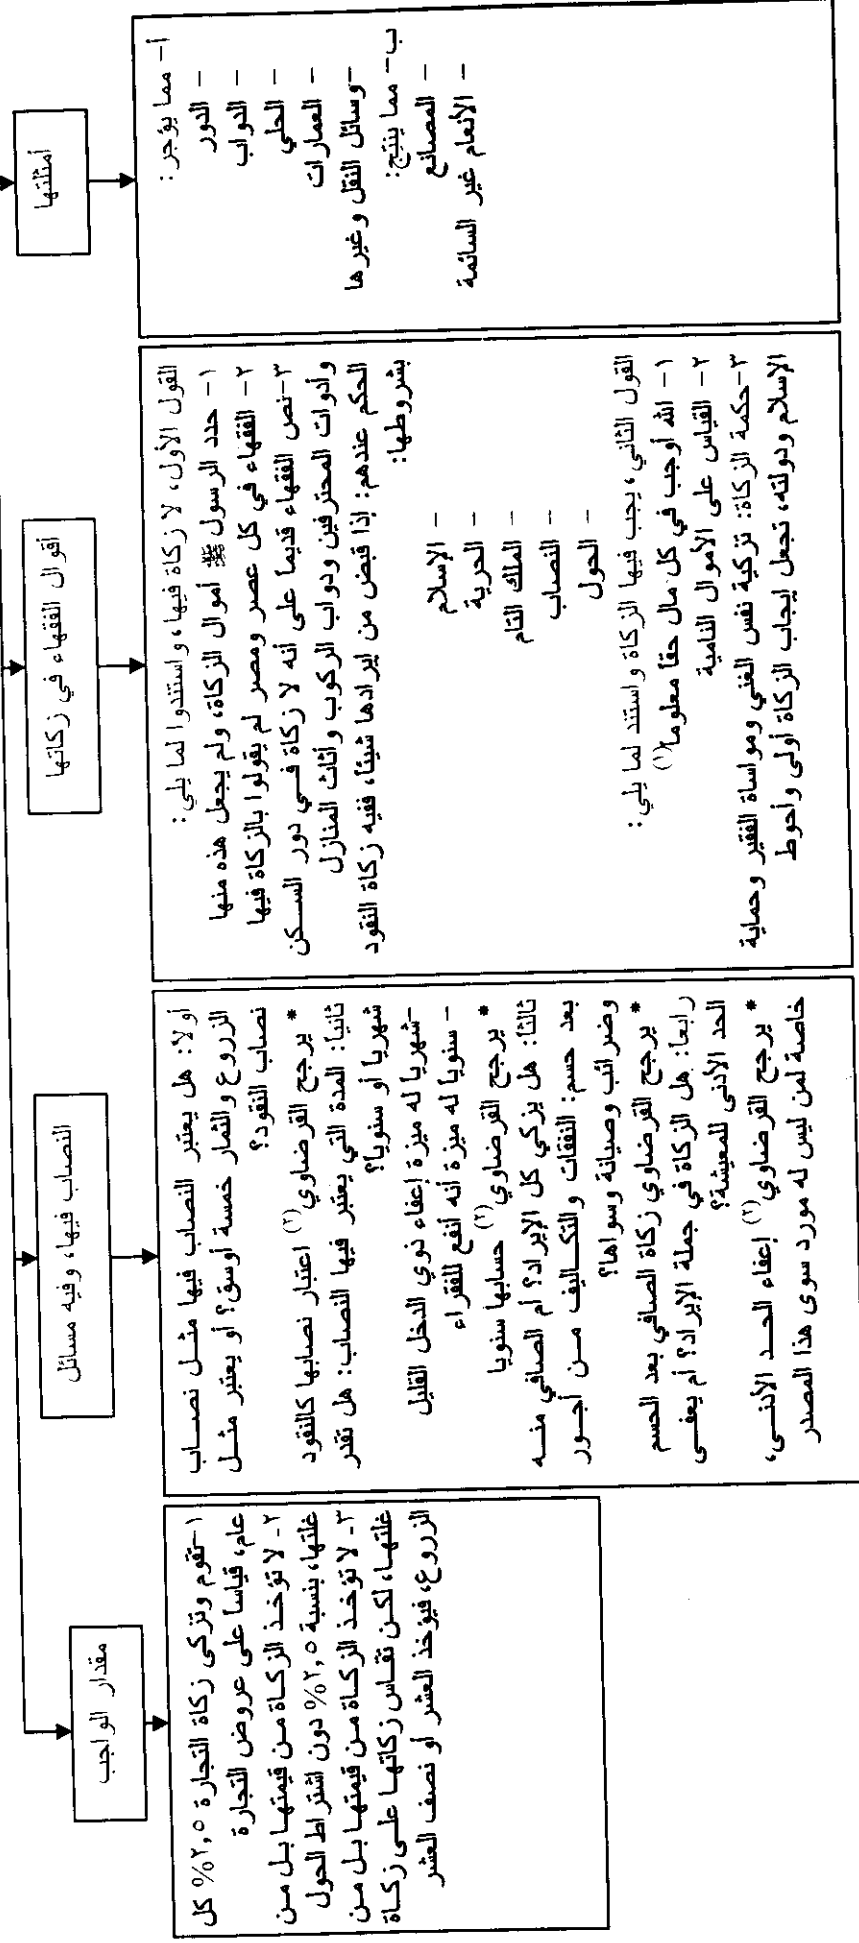 أمثلتها
أ- مما يؤجر:
- الدور
- الدواب
- الحلي
- العمارات
-وسائل النقل وغيرها
ب- مما ينتج:
- المصانع
- الأنعام غير السائمة
أقوال الفقهاء في زكاتها
القول الأول، لا زكاة فيها، واستندوا لما يلي:
١- حدد الرسول ﷺ أموال الزكاة، ولم يجعل هذه منها
٢- الفقهاء في كل عصر ومصر لم يقولوا بالزكاة فيها
٣-نص الفقهاء قديماً على أنه لا زكاة في دور السكن
وأدوات المحترفين ودواب الركوب وأثاث المنازل
الحكم عندهم: إذا قبض من إيرادها شيئا، ففيه زكاة النقود
بشروطها:
- الإسلام
- الحرية
- الملك التام
- النصاب
- الحول
القول الثاني، يجب فيها الزكاة واستند لما يلي:
١- الله أوجب في كل مال حقاً معلوما(١)
٢- القياس على الأموال النامية
٣-حكمة الزكاة: تزكية نفس الغني ومواساة الفقير وحماية
الإسلام ودولته، تجعل إيجاب الزكاة أولى وأحوط
النصاب فيها، وفيه مسائل
أولا: هل يعتبر النصاب فيها مثل نصاب
الزروع والثمار خمسة أوسق؟ أو يعتبر مثل
نصاب النقود؟
* يرجح القرضاوي(٢) اعتبار نصابها كالنقود
ثانيا: المدة التي يعتبر فيها النصاب: هل تقدر
شهريا أو سنويا؟
-شهريا له ميزة إعفاء ذوي الدخل القليل
- سنويا له ميزة أنه أنفع للفقراء
* يرجح القرضاوي(٢) حسابها سنويا
ثالثا: هل يزكي كل الإيراد؟ أم الصافي منه
بعد حسم: النفقات والتكاليف من أجور
وضرائب وصيانة وسواها؟
* يرجح القرضاوي زكاة الصافي بعد الحسم
رابعا: هل الزكاة في جملة الإيراد؟ أم يعفى
الحد الأدنى للمعيشة؟
* يرجح القرضاوي(٢) إعفاء الحد الأدنى،
خاصة لمن ليس له مورد سوى هذا المصدر
مقدار الواجب
١-تقوم وتزكى زكاة التجارة ٢,٥% كل
عام، قياسا على عروض التجارة
٢- لا تؤخذ الزكاة من قيمتها بل من
غلتها، بنسبة ٢,٥% دون اشتراط الحول
٣- لا تؤخذ الزكاة من قيمتها بل من
غلتها، لكن تقاس زكاتها على زكاة
الزروع، فيؤخذ العشر أو نصف العشر